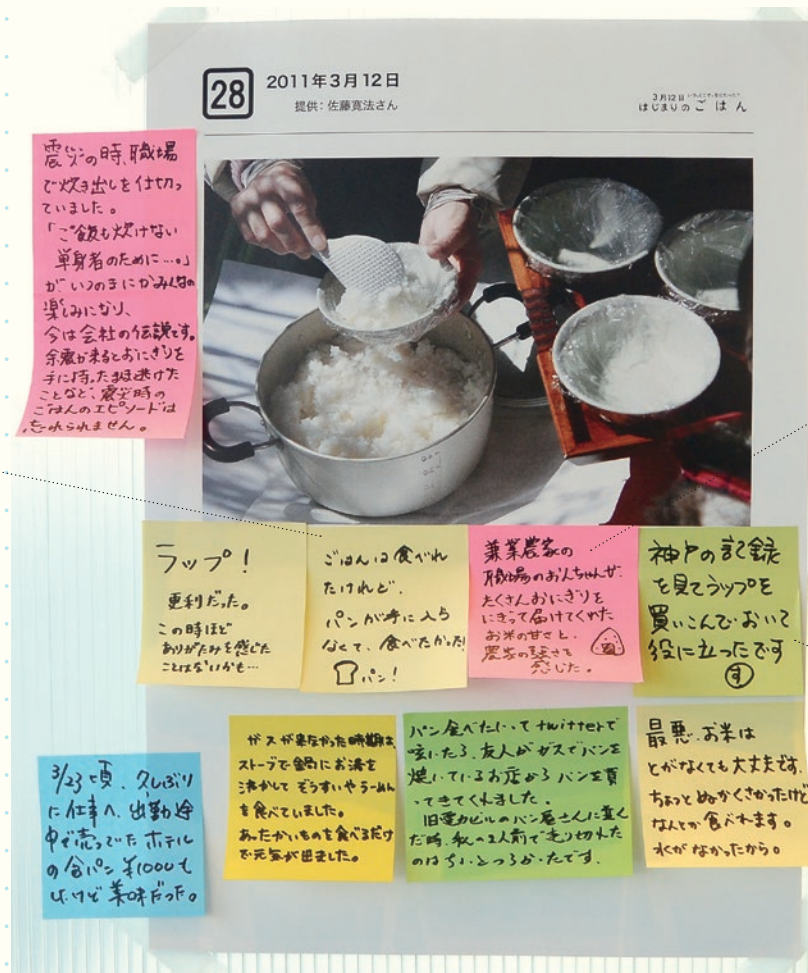 28
2011年3月12日
提供:佐藤寛法さん
3月12日
はじまりのごはん
震災の時、職場
で炊き出しを仕切っ
ていました。
「ご飯も炊けない
単身者のために…。」
がいつのまにかみんなの
楽しみになり、
今は会社の伝説です。
余震が来るとおにぎりを
手に持ったまま逃げた
ことなど、震災時の
ごはんのエピソードは
忘れられません。
ラップ!
便利だった。
この時ほど
ありがたみを感じた
ことはないかも…
ごはんは食べれ
たけれど、
パンが手に入ら
なくて、食べたかった!
パン!
兼業農家の
職場のおんちゃんが、
たくさんおにぎりを
にぎって届けてくれた
お米の甘さと、
農家の強さを
感じた。
神戸の記録
を見てラップを
買いこんでおいて
役に立ったです
す
3/23頃、久しぶり
に仕事へ、出勤途
中で売ってたホテル
の食パン ¥1000も
したけど美味だった。
ガスが来なかった時期は、
ストーブで鍋にお湯を
沸かしてぞうすいやらーめん
を食べていました。
あったかいものを食べるだけ
で元気が出ました。
パン食べたいってtwitterで
呟いたら、友人がガスでパンを
焼いているお店からパンを買
ってきてくれました。
旧電力ビルのパン屋さんに並ん
だ時、私の2人前で売り切れた
のはちょっとつらかったです。
最悪、お米は
とがなくても大丈夫です。
ちょっとぬかくさかったけど
なんとか食べれます。
水がなかったから。